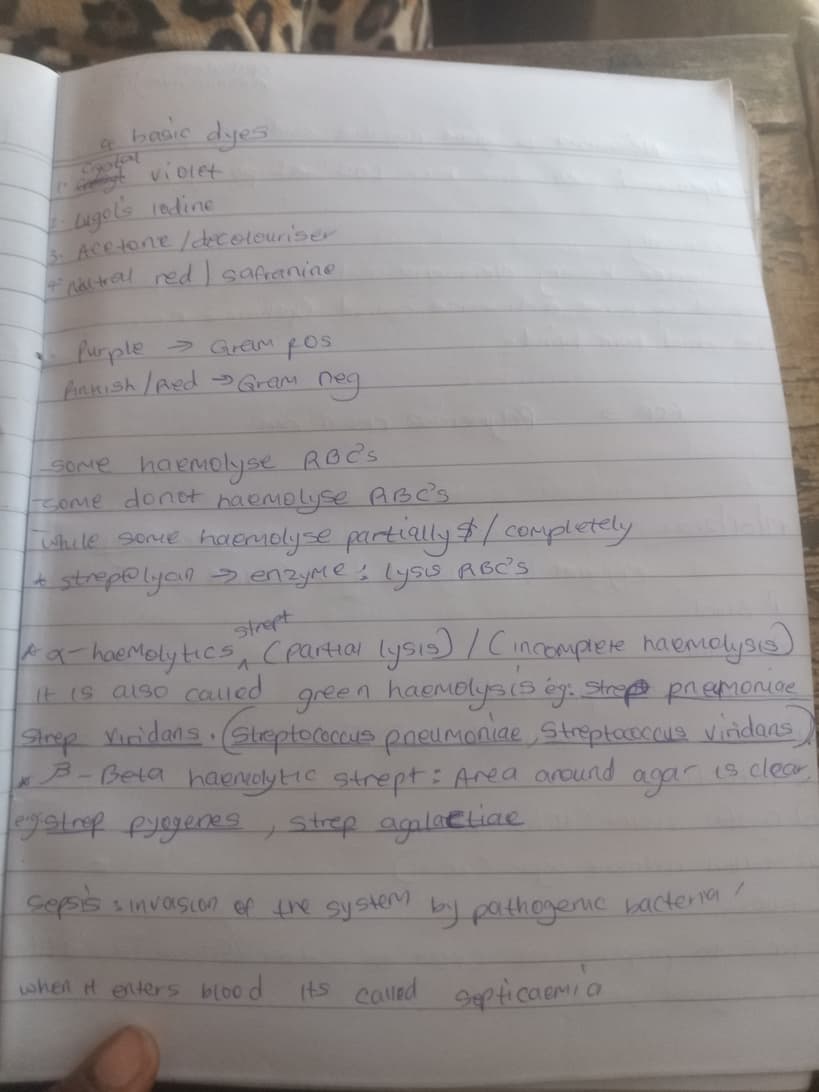 4 basic dyes
1. Crystal violet
2. Lugol's Iodine
3. Acetone/decolouriser
4. Nutral red / safranine
Purple → Gram pos
Pinkish/Red → Gram neg
-some haemolyse RBC's
-some donot haemolyse RBC's
-while some haemolyse partially / completely
* streptolysin → enzyme : lysis RBC's
* α-haemolytics strept (partial lysis) / (incomplete haemolysis)
It is also called green haemolysis eg: strep pnemoniae
strep viridans. (Streptococcus pneumoniae, Streptococcus viridans)
* β-Beta haemolytic strept: Area around agar is clear.
eg strep pyogenes, strep agalactiae
Sepsis : invasion of the system by pathogenic bacteria
when it enters blood its called septicaemia